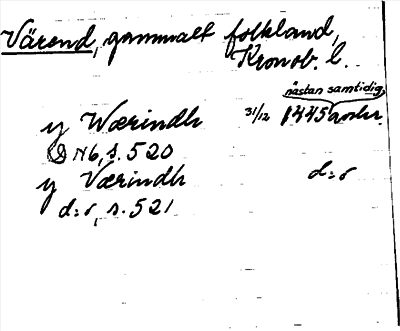 Värend, gammalt folkland,
Kronob. l.
nästan samtidig
y Wærindh 31/12 1445 avskr.
N6, s. 520
y Værindh d:o
d:o, s. 521